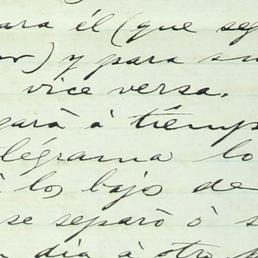 ara él (que seg
) y para su
vice versa.
gará á tiemp
legrama lo
á los bajos de
se separó ó s
dia á otro p